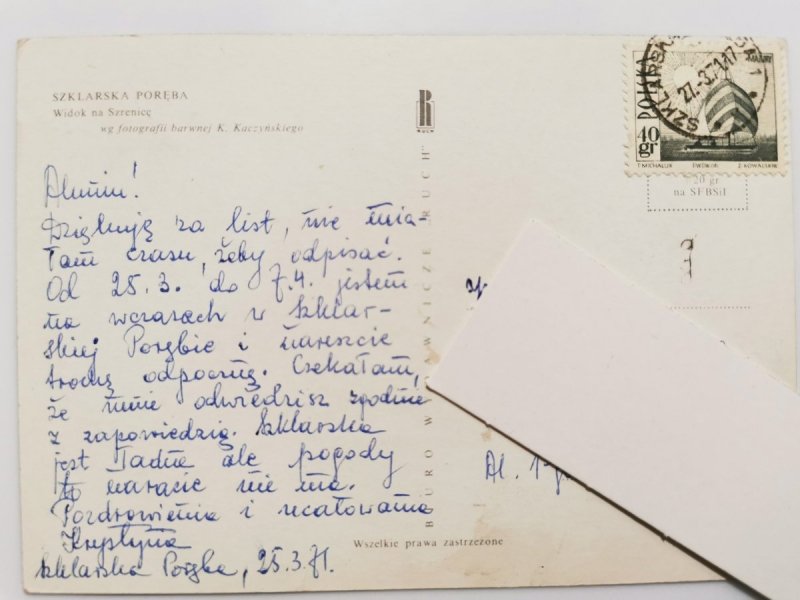 SZKLARSKA PORĘBA
Widok na Szrenicę
wg fotografii barwnej K. Kaczyńskiego
RUCH
BIURO W WNICZE RUCH
POLSKA
40 gr
T. MICHALUK PWPW. 66 Z. KOWALSKI
SZKLARSKA 1
27.-3.71.17
20 gr
na SFBSiI
Dziękuję za list, nie mia-
łam czasu, żeby odpisać.
Od 25.3. do 7.4. jestem
na wczasach w Szklar-
skiej Porębie i nareszcie
trochę odpocznę. Czekałam,
że mnie odwiedzisz zgodnie
z zapowiedzią. Szklarska
jest ładna ale pogody
to narazie nie ma.
Pozdrowienia i ucałowania
Krystyna
Szklarska Poręba, 25.3.71.
Al.
Wszelkie prawa zastrzeżone